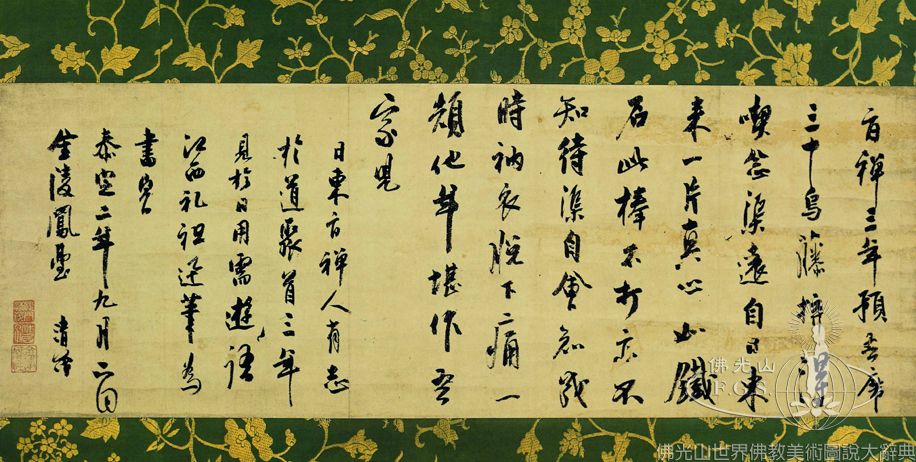 禅三年預吾席
三十烏藤
喫念渠遠自日東
来一片真心如鐵
石此棒不打亦不
知待渠自會知我
時衲衣脱下痛一
頓他年堪作吾
家児
日東禅人有志
於道聚首三年
見於日用需遊
江西礼祖迅筆為
書
泰定二年九月日
金陵鳳臺 清茂
佛光山
佛光山世界佛教美術圖說大辭典